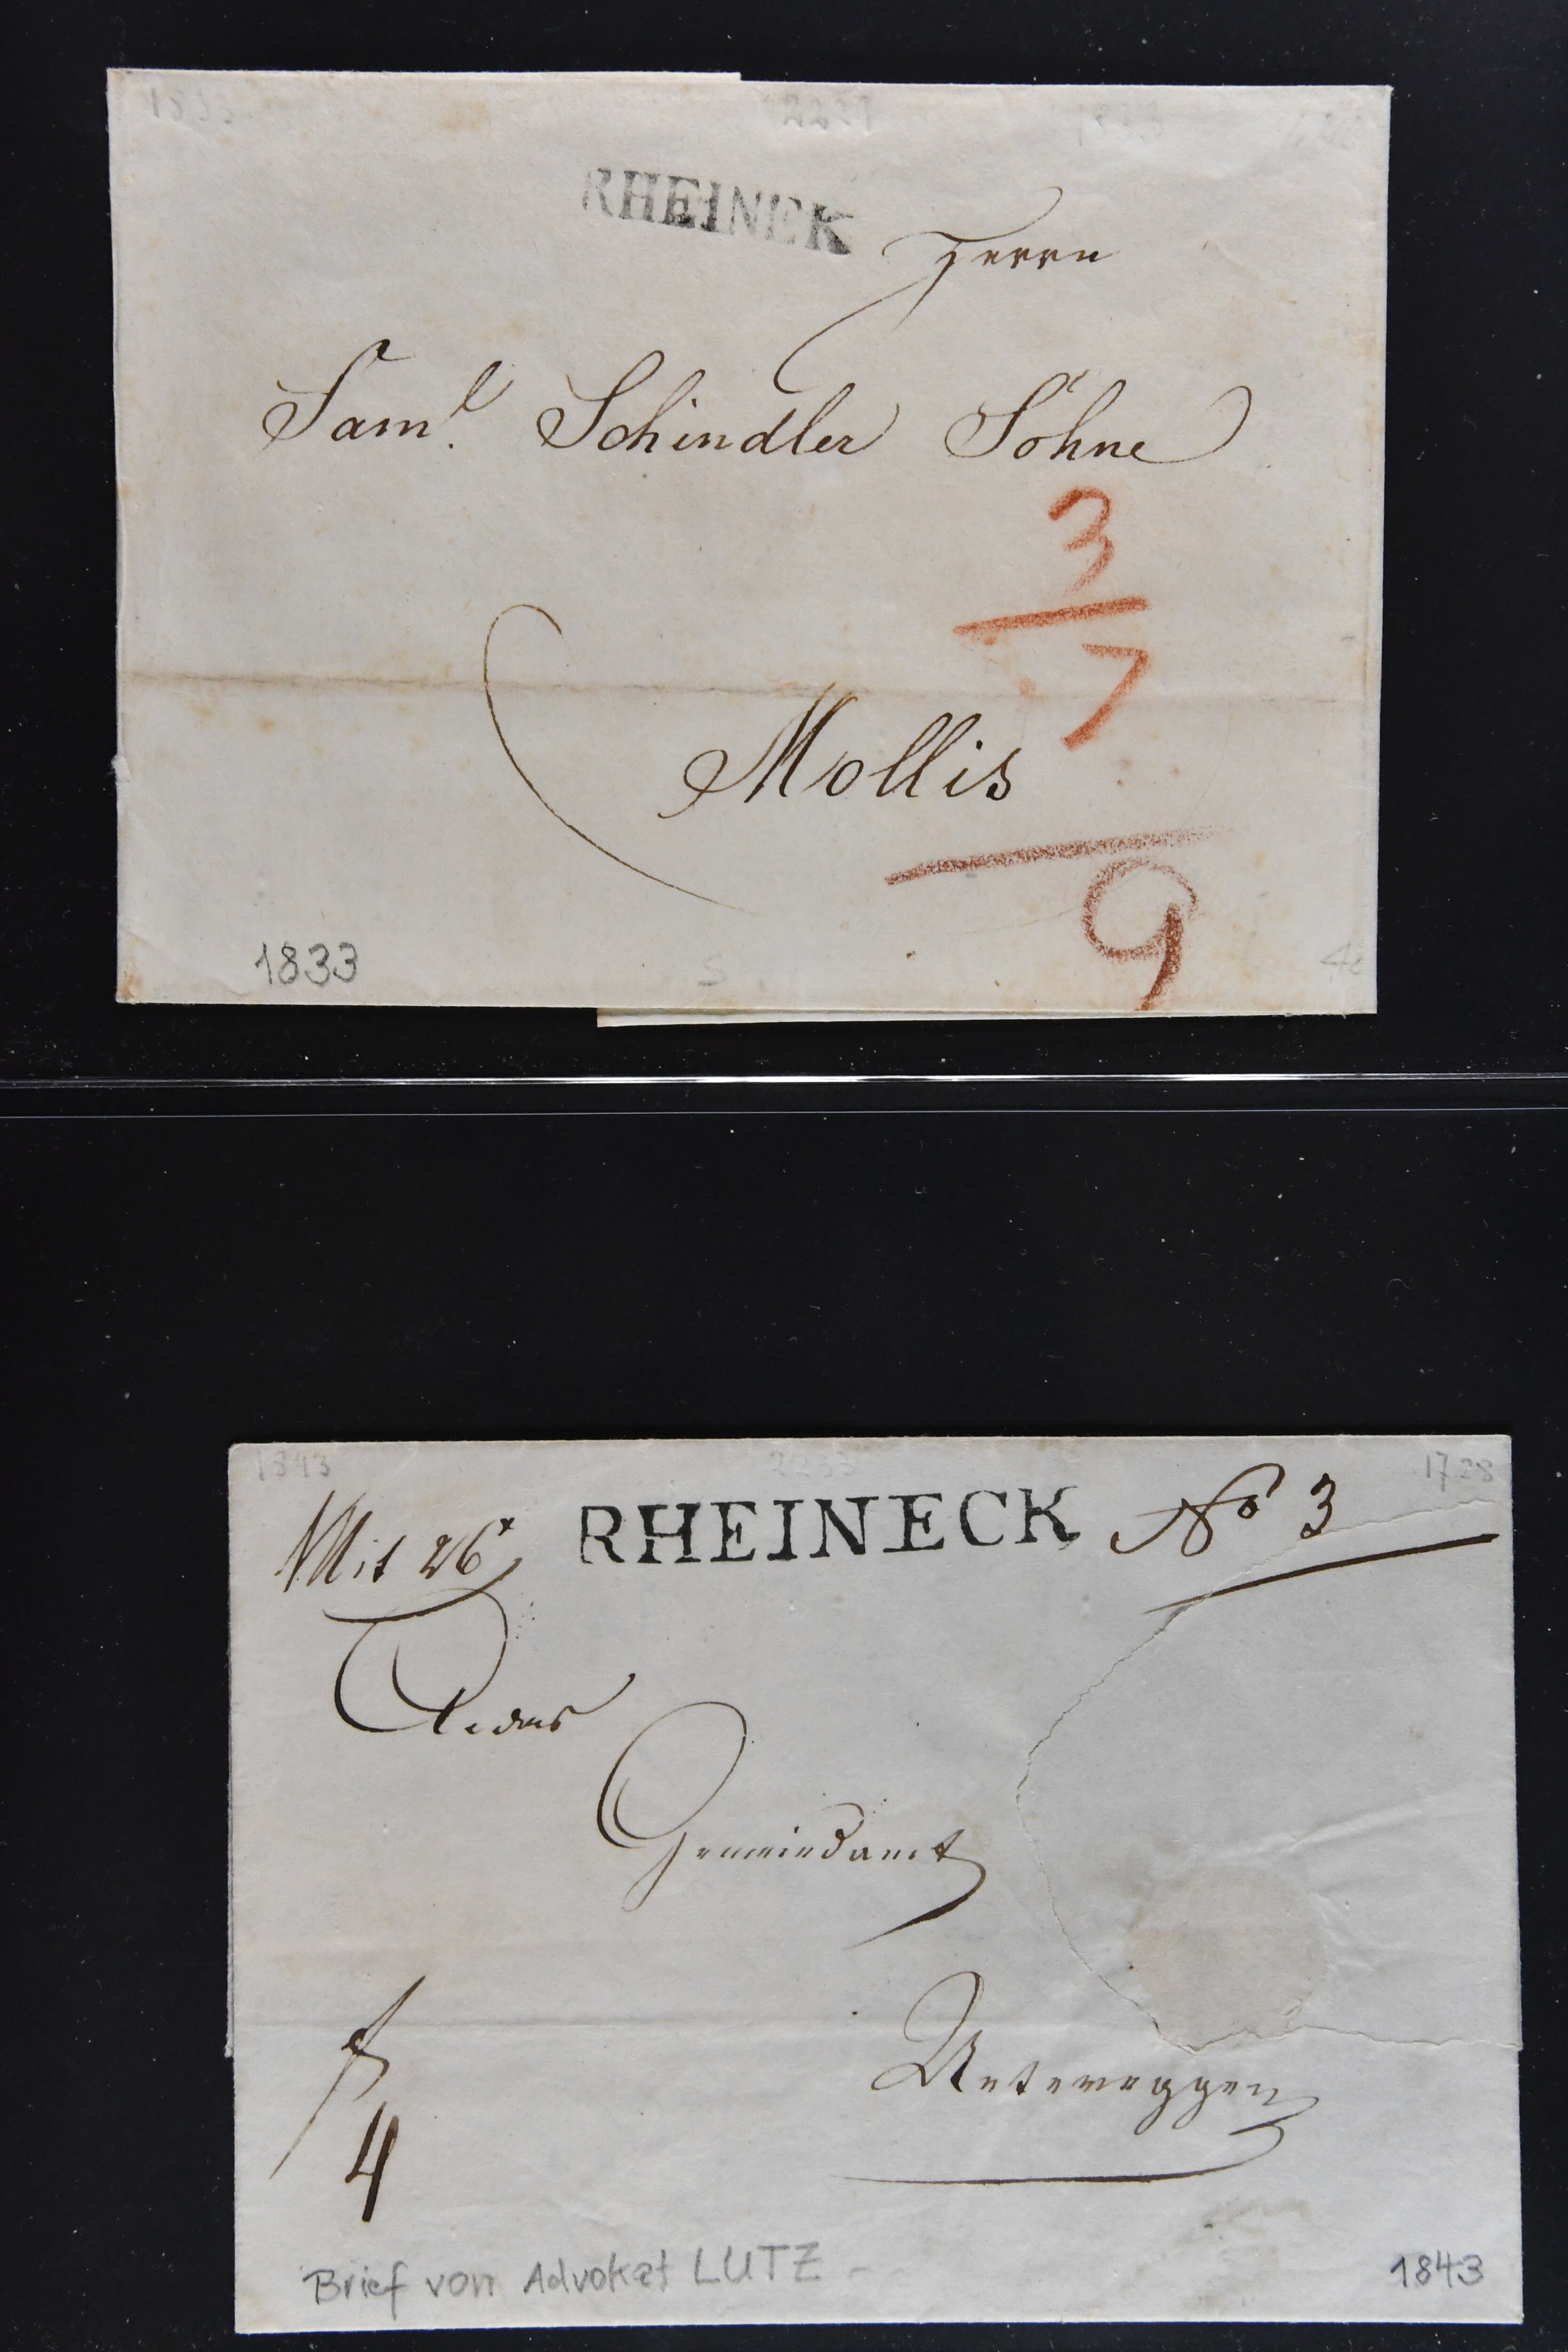 1833
RHEINEK
Herrn
Sam.l Schindler Söhne
3
7
Mollis
9
1833
1843
1728
Mit 26x RHEINECK No 3
Gemeindamt
f
4
Untereggen
Brief von Advokat LUTZ
1843